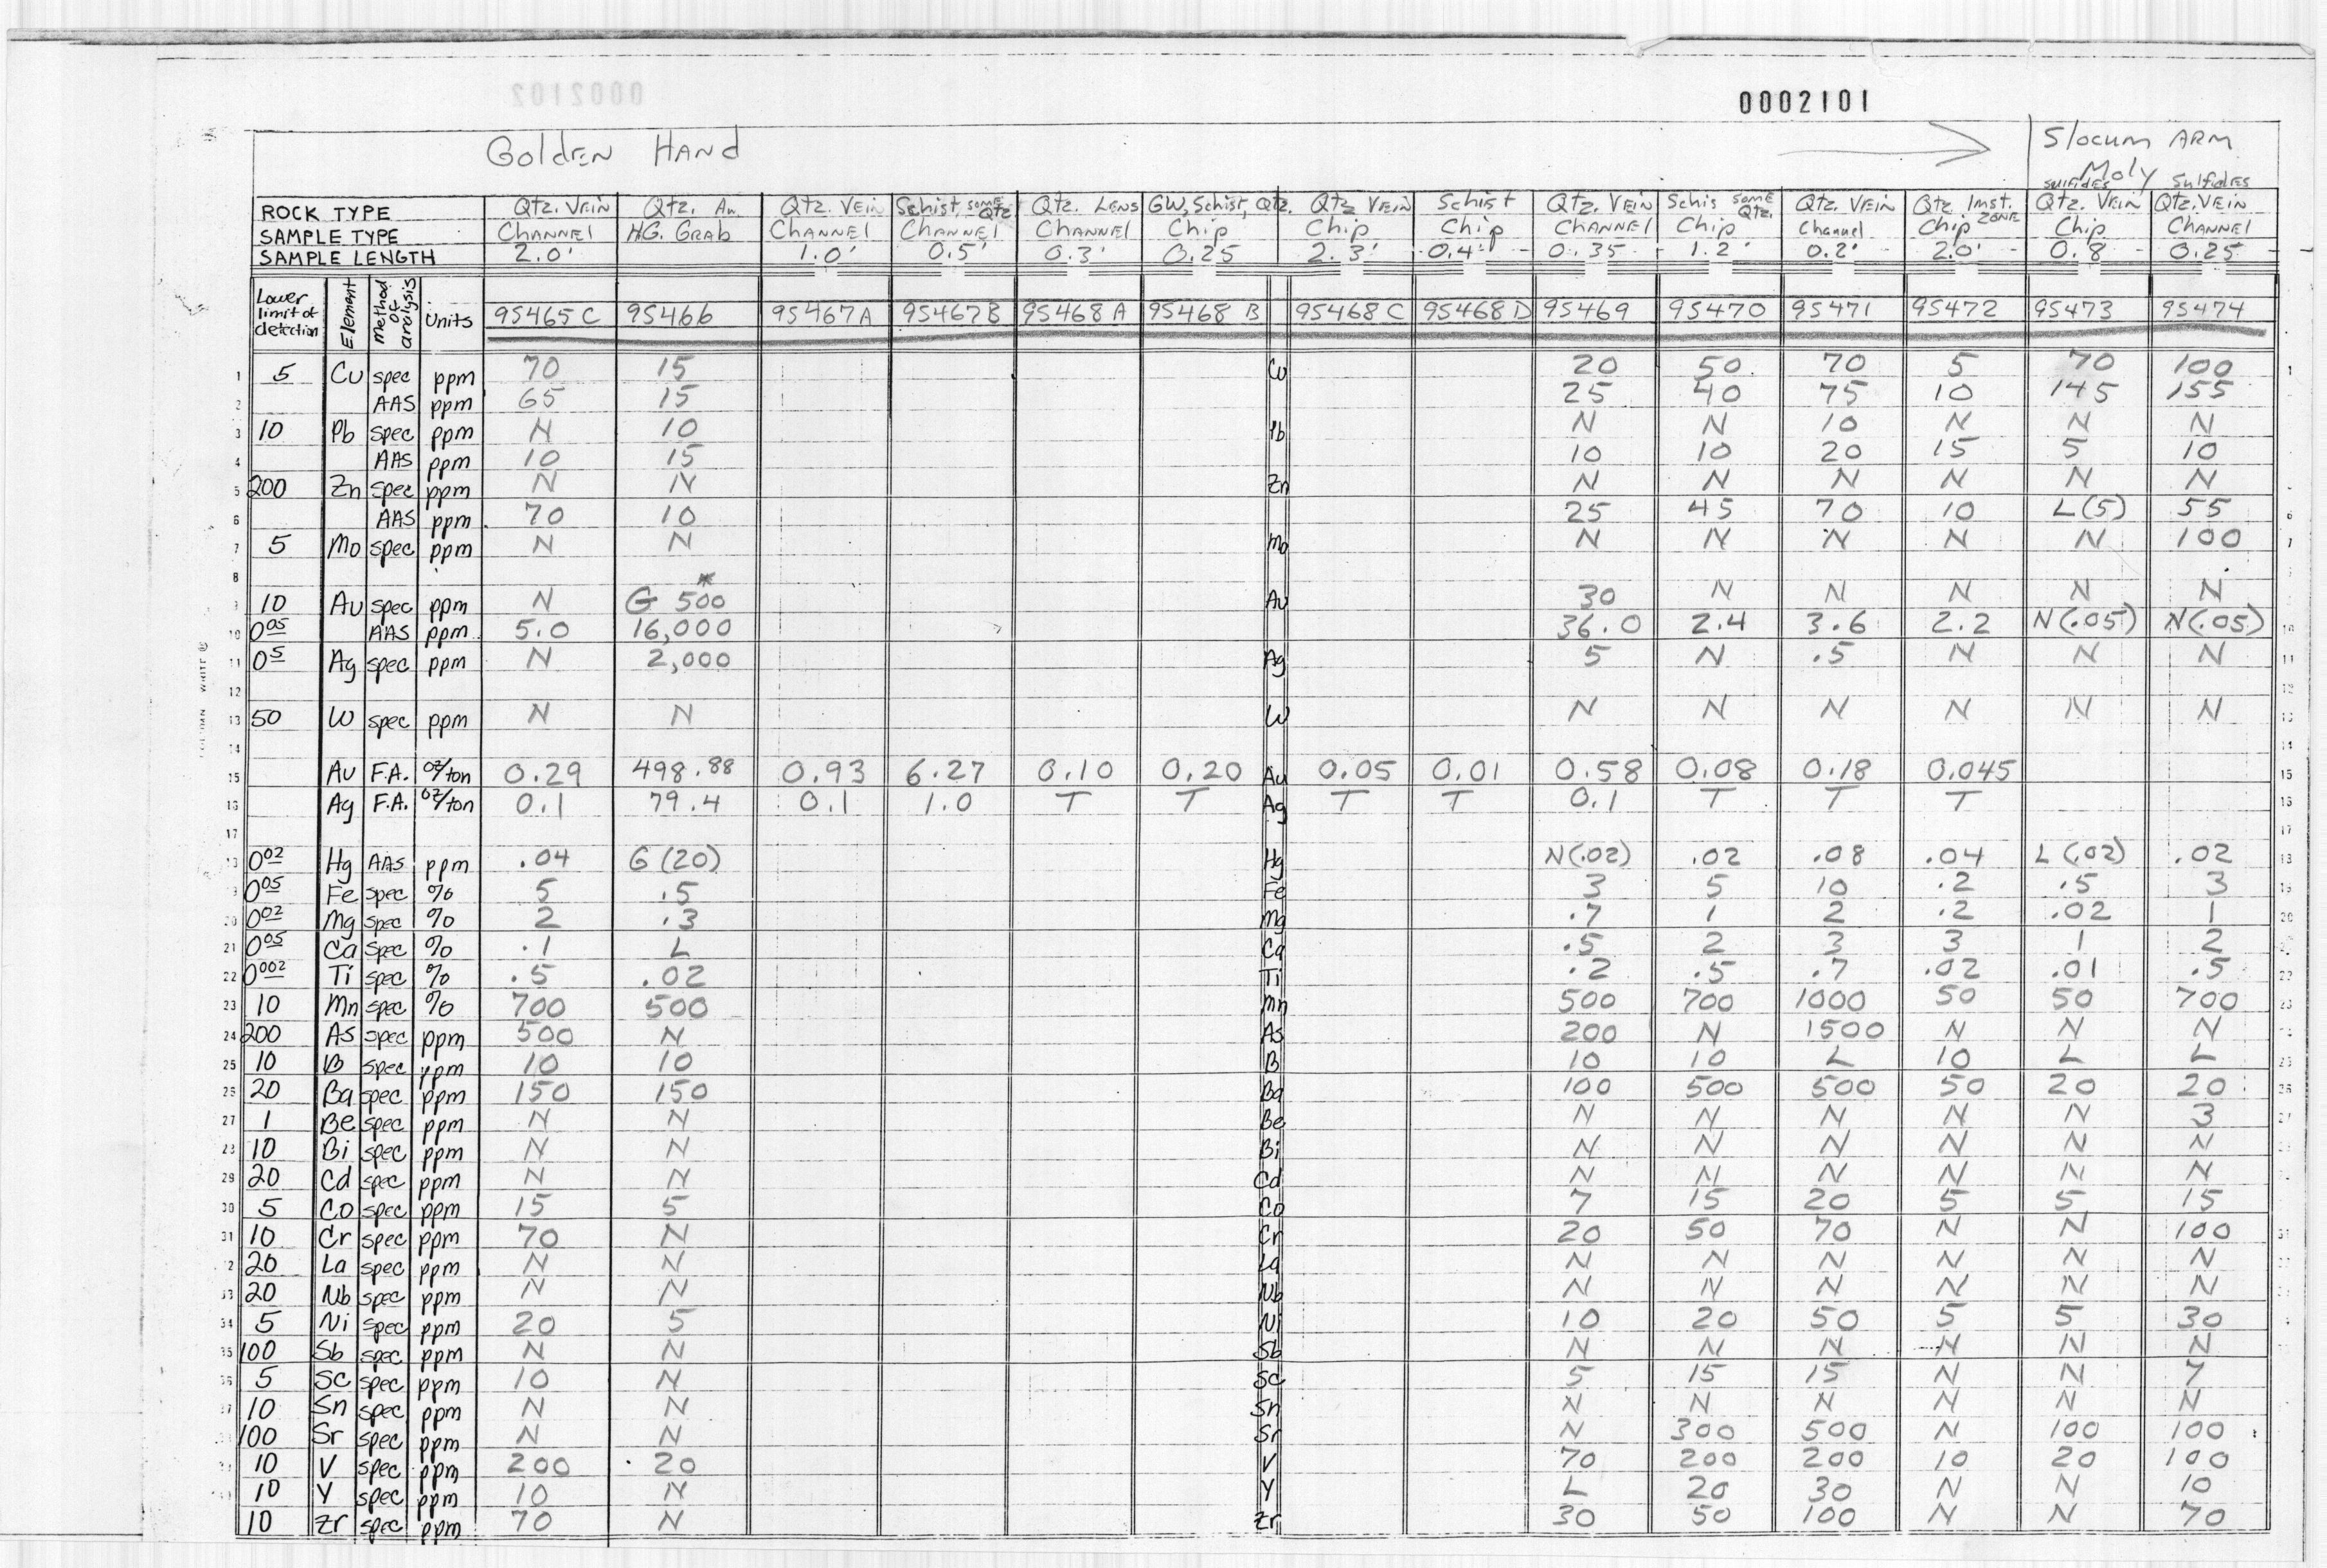 0002102
0002101
Golden Hand
Slocum Arm
Moly
sulfides Sulfides
ROCK TYPE Qtz. Vein Qtz. Au Qtz. Vein Schist, some Qtz Qtz. Lens GW, Schist, Qtz. Qtz Vein Schist Qtz. Vein Schis some Qtz. Qtz. Vein Qtz Imst. Zone Qtz. Vein Qtz. Vein
SAMPLE TYPE Channel HG. Grab Channel Channel Channel Chip Chip Chip Channel Chip Channel Chip Chip Channel
SAMPLE LENGTH 2.0' 1.0' 0.5' 0.3' 0.25 2.3' 0.4' 0.35 1.2' 0.2' 2.0' 0.8 0.25
Lower limit of detection Element Method of analysis Units 9S465C 9S466 9S467A 9S467B 9S468A 9S468B 9S468C 9S468D 9S469 9S470 9S471 9S472 9S473 9S474
1 5 Cu spec ppm 70 15 Cu 20 50 70 5 70 100 1
2 AAS ppm 65 15 25 40 75 10 145 155
3 10 Pb spec ppm N 10 Pb N N 10 N N N
4 AAS ppm 10 15 10 10 20 15 5 10
5 200 Zn spec ppm N N Zn N N N N N N
6 AAS ppm 70 10 25 45 70 10 L(5) 55 6
7 5 Mo spec ppm N N Mo N N N N N 100 7
8 *
9 10 Au spec ppm N G 500 Au 30 N N N N N
10 0.05 AAS ppm 5.0 16,000 36.0 2.4 3.6 2.2 N(.05) N(.05) 10
11 0.5 Ag spec ppm N 2,000 Ag 5 N .5 N N N 11
12 12
13 50 W spec ppm N N W N N N N N N 13
14 14
15 Au F.A. oz/ton 0.29 498.88 0.93 6.27 0.10 0.20 Au 0.05 0.01 0.58 0.08 0.18 0.045 15
16 Ag F.A. oz/ton 0.1 79.4 0.1 1.0 T T Ag T T 0.1 T T T 16
17 17
18 0.02 Hg AAS ppm .04 G(20) Hg N(.02) .02 .08 .04 L(.02) .02 18
19 0.05 Fe spec % 5 .5 Fe 3 5 10 .2 .5 3 19
20 0.02 Mg spec % 2 .3 Mg .7 1 2 .2 .02 1 20
21 0.05 Ca spec % .1 L Ca .5 2 3 3 1 2 21
22 0.002 Ti spec % .5 .02 Ti .2 .5 .7 .02 .01 .5 22
23 10 Mn spec % 700 500 Mn 500 700 1000 50 50 700 23
24 200 As spec ppm 500 N As 200 N 1500 N N N
25 10 B spec ppm 10 10 B 10 10 L 10 L L 25
26 20 Ba spec ppm 150 150 Ba 100 500 500 50 20 20 26
27 1 Be spec ppm N N Be N N N N N 3
28 10 Bi spec ppm N N Bi N N N N N N
29 20 Cd spec ppm N N Cd N N N N N N
30 5 Co spec ppm 15 5 Co 7 15 20 5 5 15
31 10 Cr spec ppm 70 N Cr 20 50 70 N N 100 31
20 La spec ppm N N La N N N N N N
33 20 Nb spec ppm N N Nb N N N N N N
34 5 Ni spec ppm 20 5 Ni 10 20 50 5 5 30
35 100 Sb spec ppm N N Sb N N N N N N
36 5 Sc spec ppm 10 N Sc 5 15 15 N N 7
37 10 Sn spec ppm N N Sn N N N N N N
100 Sr spec ppm N N Sr N 300 500 N 100 100
10 V spec ppm 200 20 V 70 200 200 10 20 100
10 Y spec ppm 10 N Y L 20 30 N N 10
10 Zr spec ppm 70 N Zr 30 50 100 N N 70